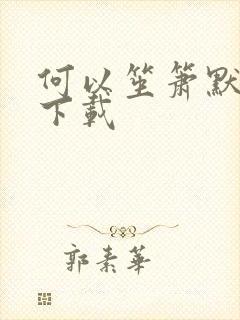 何以笙箫默
下载
郭素华